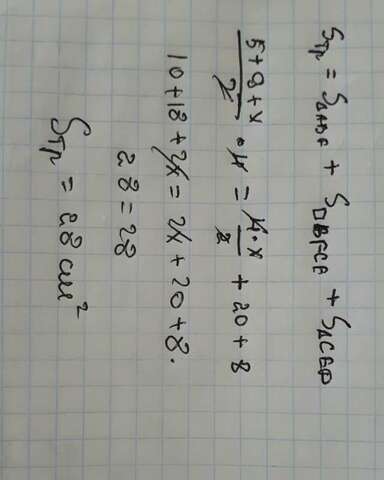 Sтр = S△ABF + S□BFCE + S△CED
5+9+x/2 · 4 = 4·x/2 + 20 + 8
10+18+2x = 2x+20+8.
28=28
Sтр = 28 см²